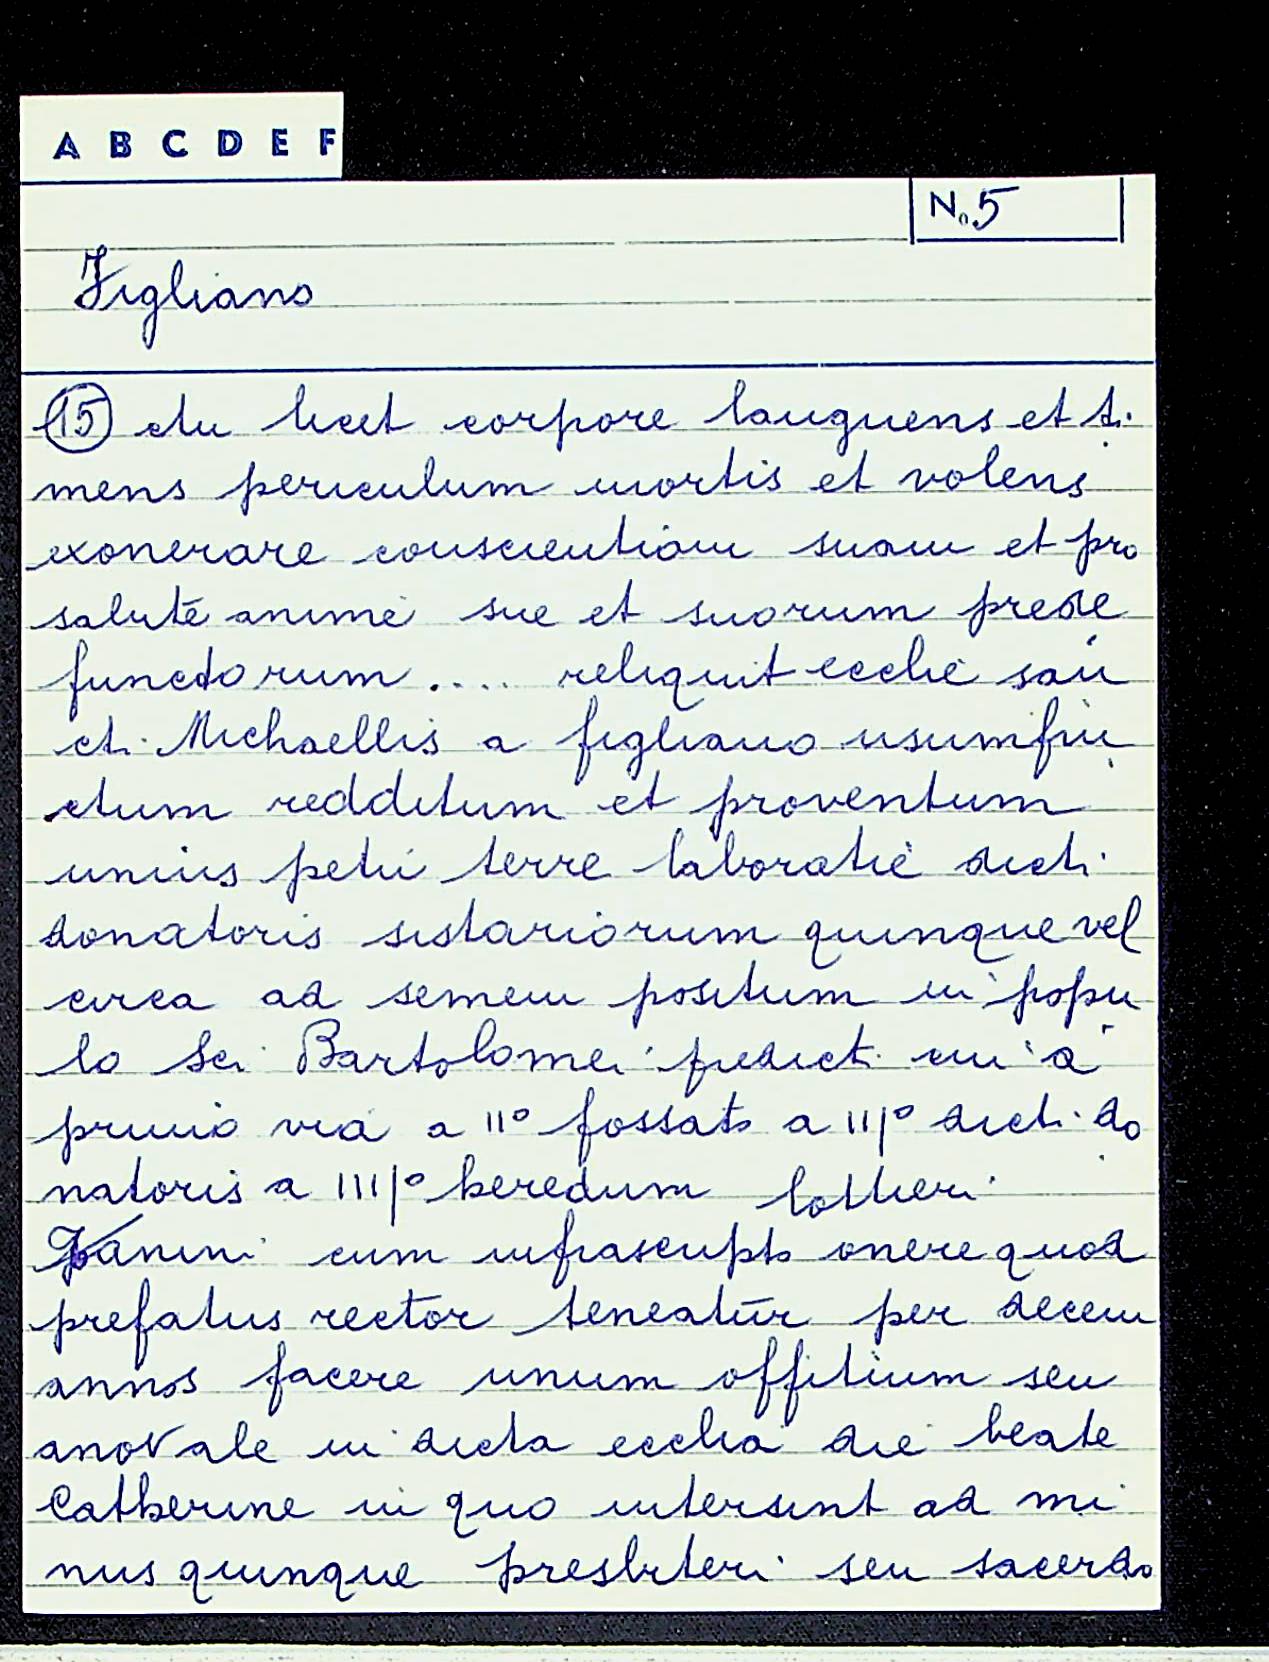 A B C D E F
No. 5
Figliano
(15) ctu licet corpore languens et ti
mens periculum mortis et volens
exonerare conscientiam suam et pro
salute anime sue et suorum prede
functorum .... reliquit ecclie san
cti Michaellis a figliano usumfru
ctum redditum et proventum
unius petii terre laboratie dicti
donatoris sistariorum quinque vel
circa ad semem positum in popu
lo Sci Bartolomei predict. cui a
primo via a IIo fossato a IIIo dicti do
natoris a IIIIo heredum lottieri
Vanini cum infrascripto onere quod
prefatus rector teneatur per decem
annos facere unum offitium seu
anovale in dicta ecclia die beate
Catherine in quo intersint ad mi
nus quinque presbiteri seu sacerdo